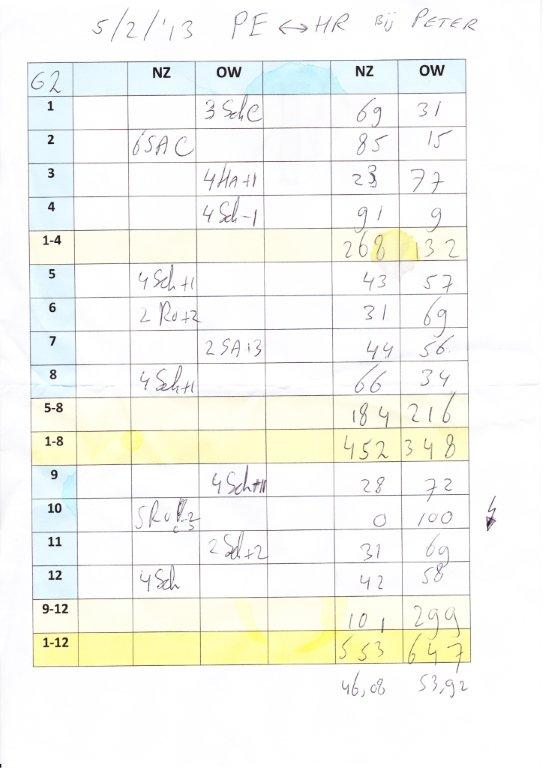 5/2/'13 PE ↔ HR Bij PETER
62 NZ OW NZ OW
1 3 Sch C 69 31
2 6SA C 85 15
3 4Ha+1 23 77
4 4Sch-1 91 9
1-4 268 132
5 4Sch+1 43 57
6 2 Ro+2 31 69
7 2SA+3 44 56
8 4Sch+1 66 34
5-8 184 216
1-8 452 348
9 4Sch+1 28 72
10 5Ro 0 100
11 2Sch+2 31 69
12 4Sch 42 58
9-12 101 299
1-12 553 647
46,08 53,92